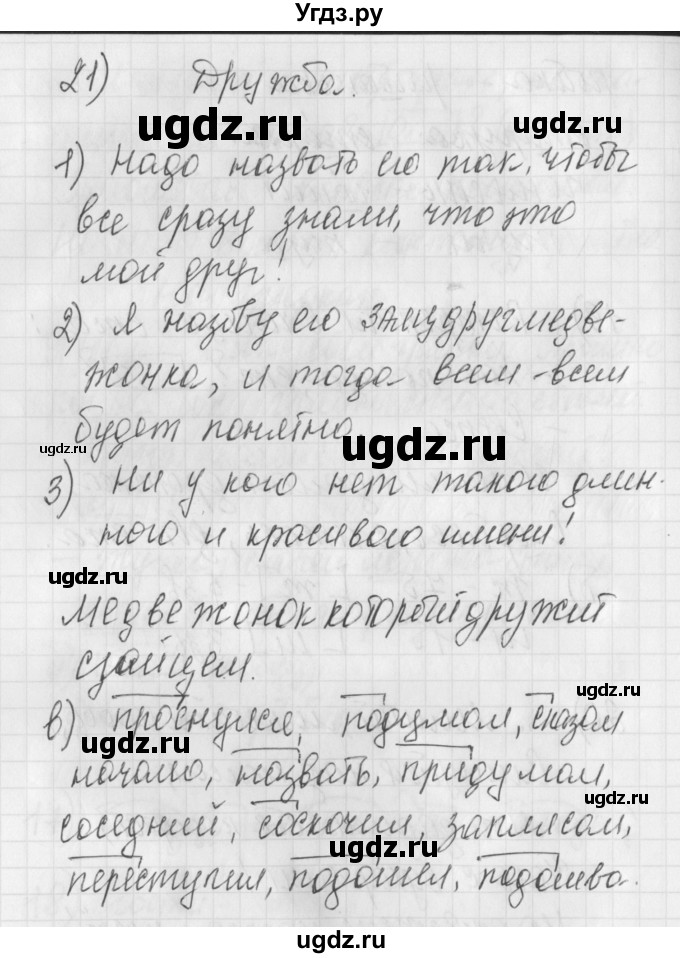 Угдз.ру
21) Дружба.
ugdz.ru ugdz.ru
1) Надо назвать его так, чтобы
все сразу знали, что это
мой друг!
ugdz.ru ugdz.ru
2) Я назову его ЗАЕЦДРУГМЕДВЕ-
ЖОНКА, и тогда всем-всем
будет понятно
ugdz.ru ugdz.ru
3) Ни у кого нет такого длин-
ного и красивого имени!
ugdz.ru
МЕДВЕЖОНОККОТОРЫЙДРУЖИТ
СЗАЙЦЕМ.
ugdz.ru
в) проснулся, подумал, сказал
ugdz.ru
начало, назвать, придумал,
ugdz.ru
соседний, соскочил, заплясал,
ugdz.ru ugdz.ru
переступил, подошёл, подошва.
ugdz.ru